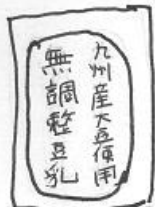 九州産大豆使用
無調整豆乳